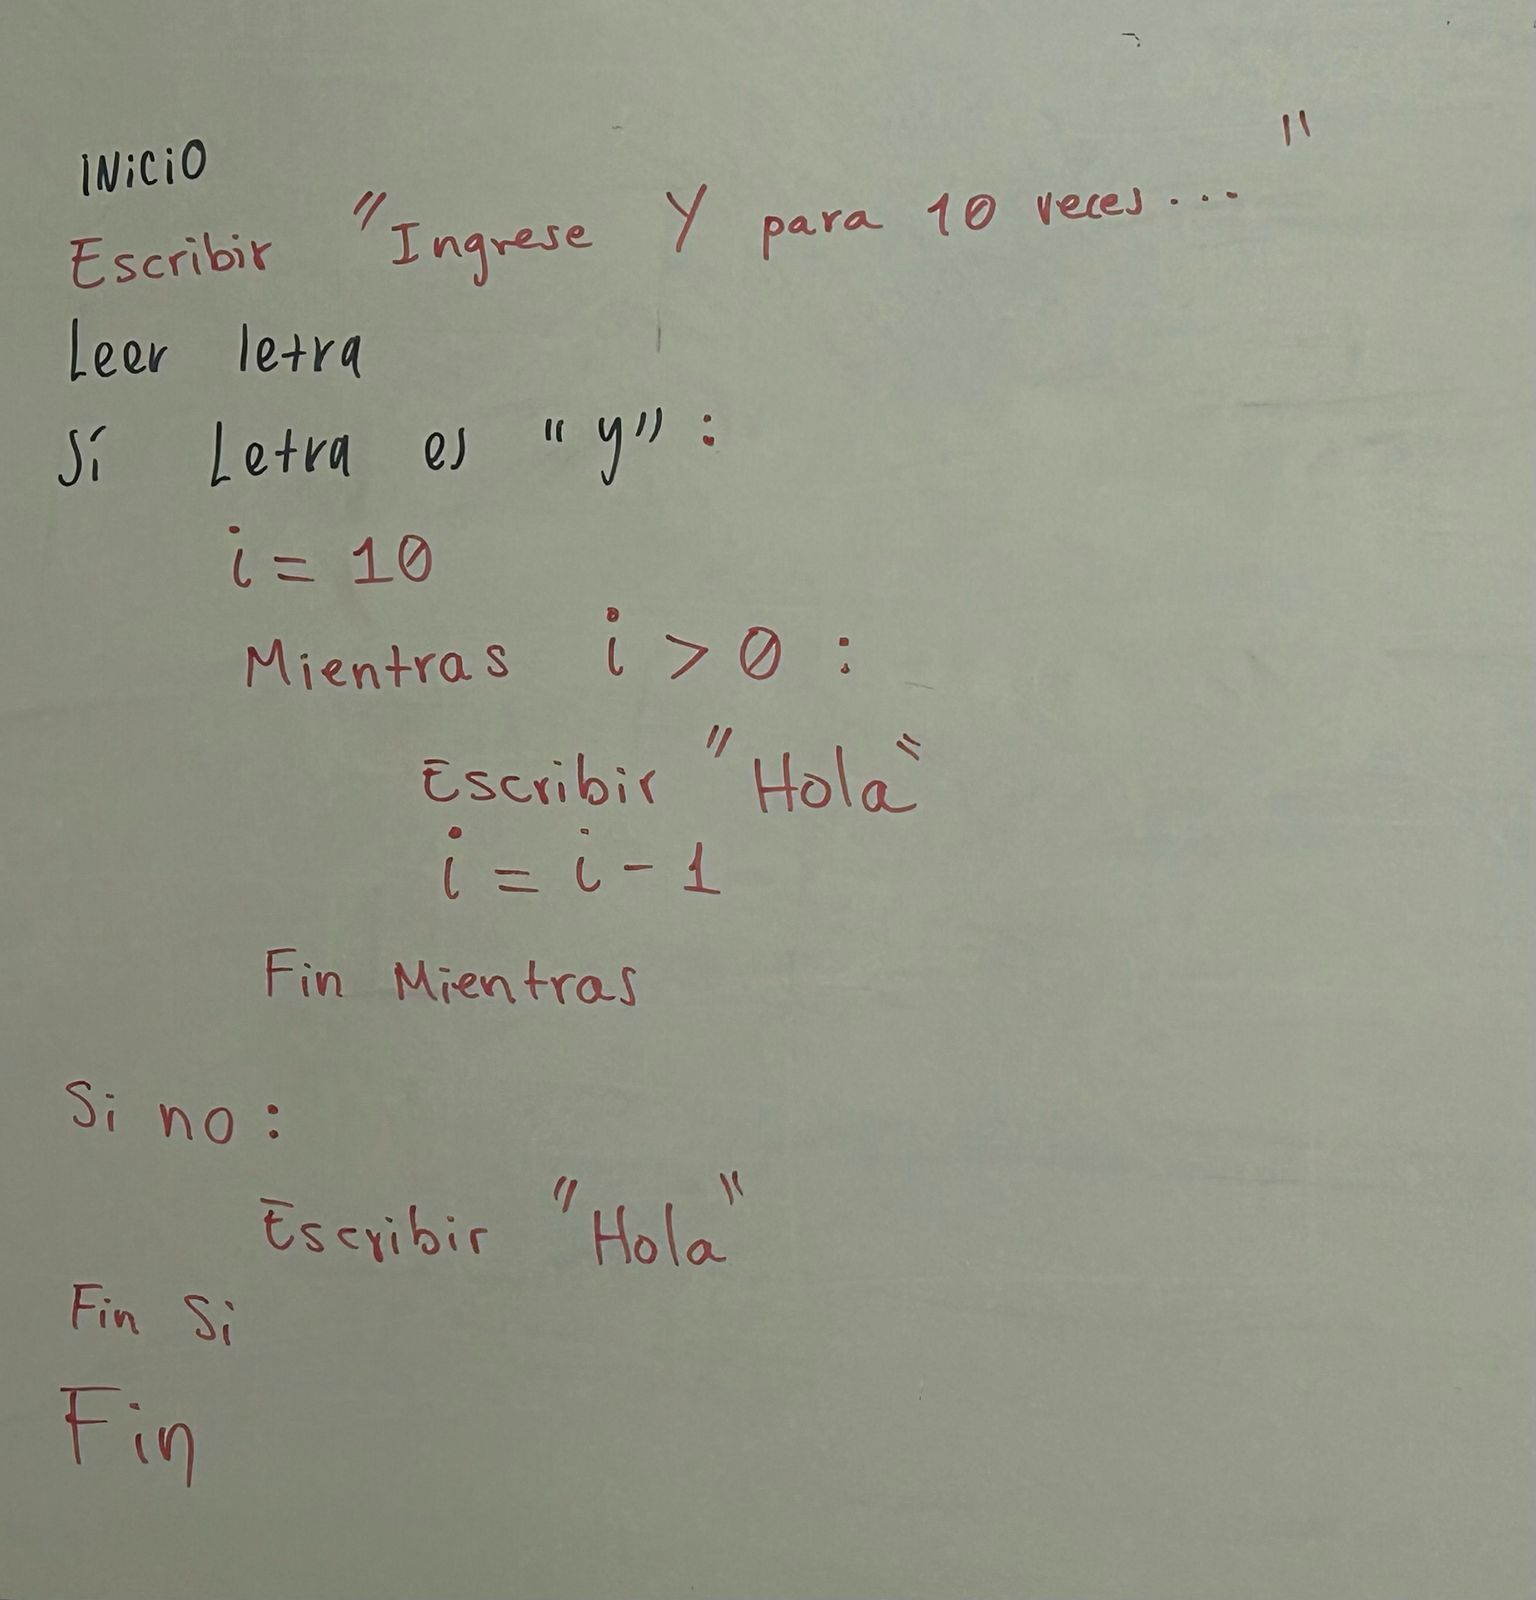 INiCiO
Escribir "Ingrese Y para 10 veces..."
Leer letra
Sí Letra es "y":
i = 10
Mientras i > 0 :
Escribir "Hola"
i = i - 1
Fin Mientras
Si no:
Escribir "Hola"
Fin Si
Fin